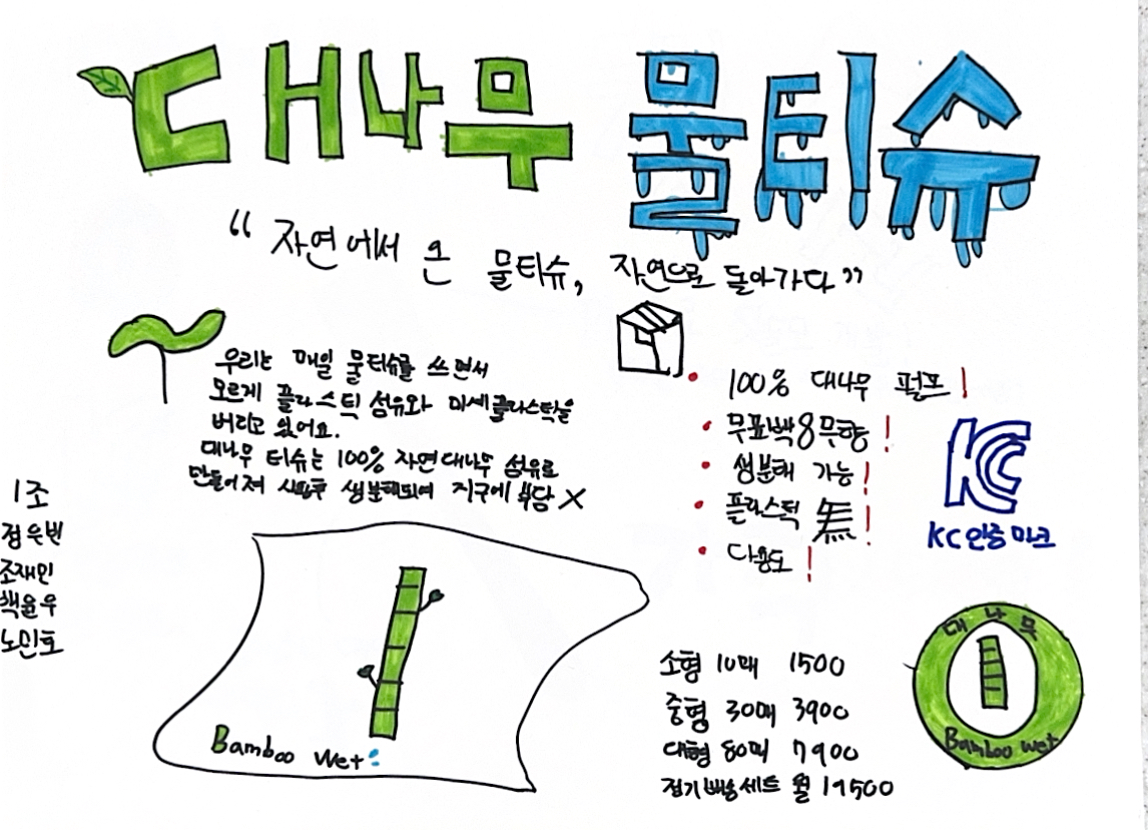 대나무 물티슈
“자연에서 온 물티슈, 자연으로 돌아가다”
우리는 매일 물티슈를 쓰면서
모르게 플라스틱 섬유와 미세플라스틱을
버리고 있어요.
대나무 티슈는 100% 자연대나무 섬유로
만들어져 사용후 생분해되며 지구에 부담 X
• 100% 대나무 펄프!
• 무표백 & 무향!
• 생분해 가능!
• 플라스틱 無!
• 다용도!
KC
KC인증마크
1조
정은빈
조재민
백윤우
노민호
Bamboo Wet
소형 10매 1500
중형 30매 3900
대형 80매 7900
정기배송세트 월 19500
대나무
Bamboo wet